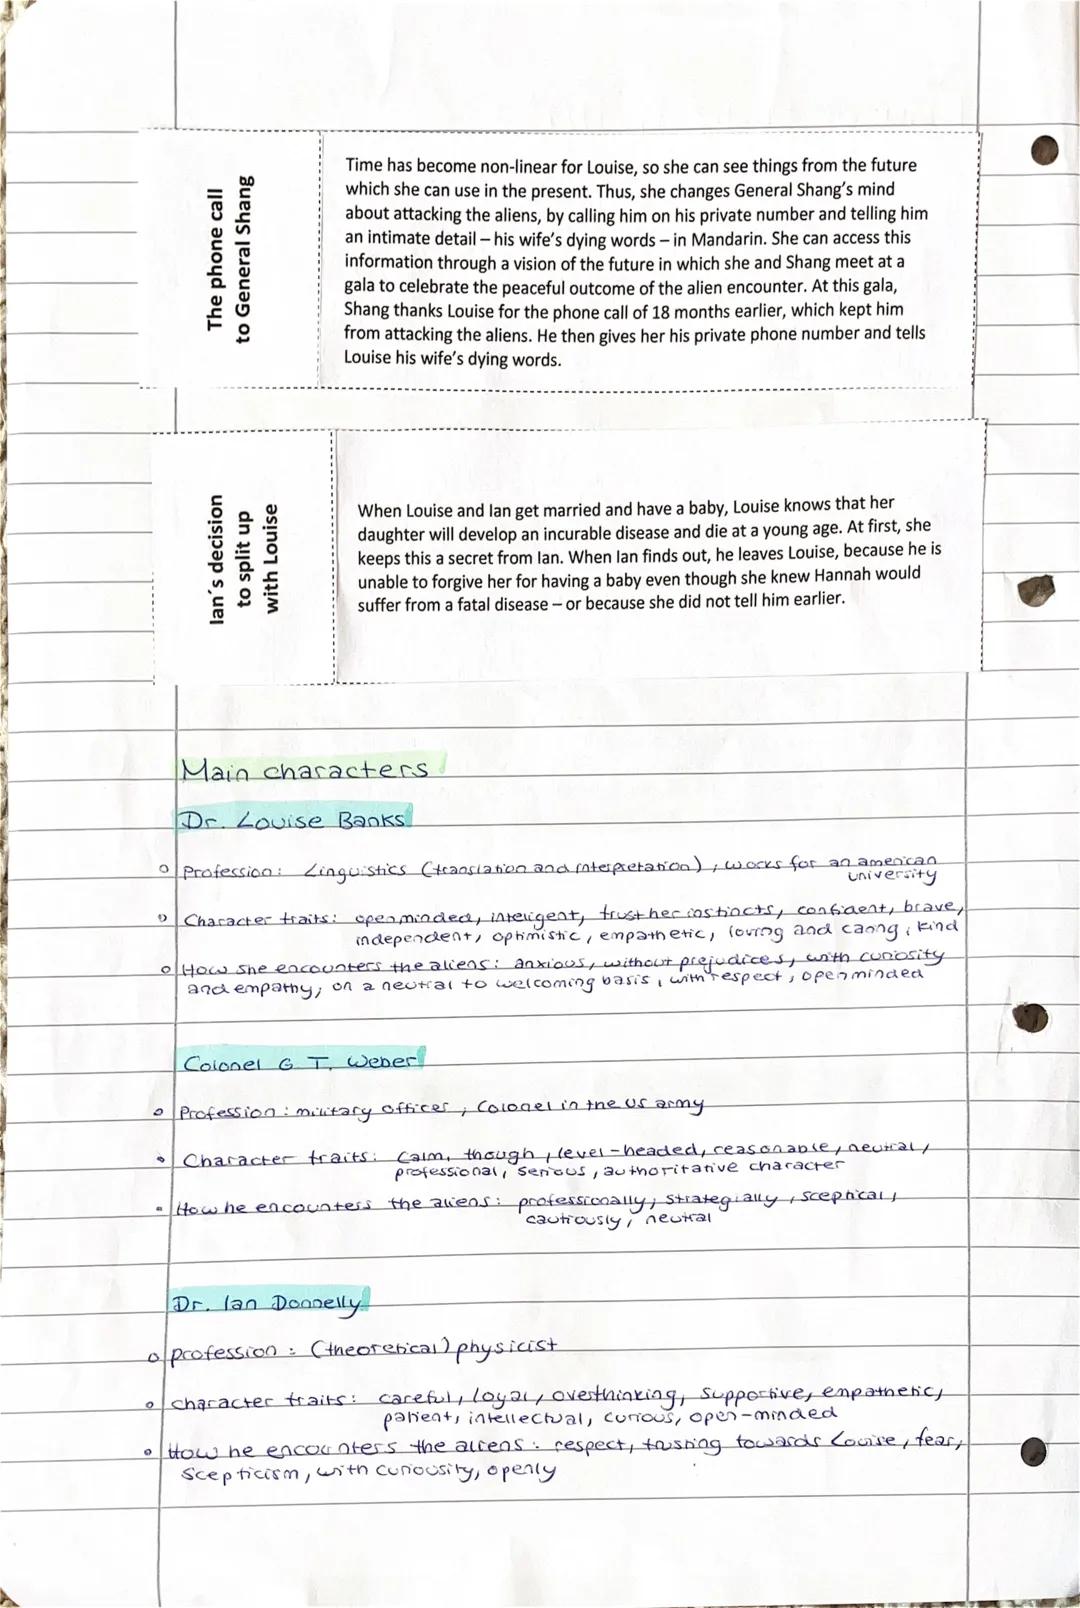 The phone call
to General Shang
Time has become non-linear for Louise, so she can see things from the future
which she can use in the present. Thus, she changes General Shang's mind
about attacking the aliens, by calling him on his private number and telling him
an intimate detail – his wife's dying words – in Mandarin. She can access this
information through a vision of the future in which she and Shang meet at a
gala to celebrate the peaceful outcome of the alien encounter. At this gala,
Shang thanks Louise for the phone call of 18 months earlier, which kept him
from attacking the aliens. He then gives her his private phone number and tells
Louise his wife's dying words.
Ian´s decision
to split up
with Louise
When Louise and Ian get married and have a baby, Louise knows that her
daughter will develop an incurable disease and die at a young age. At first, she
keeps this a secret from Ian. When Ian finds out, he leaves Louise, because he is
unable to forgive her for having a baby even though she knew Hannah would
suffer from a fatal disease – or because she did not tell him earlier.
Main characters
Dr. Louise Banks
Profession: Linguistics (translation and interpretation), works for an american
university
Character traits: openminded, inteligent, trust her instincts, confident, brave,
independent, optimistic, empathetic, loving and caring, kind
How she encounters the aliens: anxious, without prejudices, with curiosity
and empathy, on a neutral to welcoming basis, with respect, openminded
Colonel G. T. Weber
Profession: military officer, Colonel in the US army
Character traits: calm, though, level-headed, reasonable, neutral,
professional, serious, authoritative character
How he encounters the aliens: professionally, strategially, sceptical,
cautiously, neutral
Dr. Ian Donnelly
profession: (theoretical) physicist
character traits: careful, loyal, overthinking, supportive, empathetic,
patient, intellectual, curious, open-minded
How he encounters the aliens: respect, trusting towards Louise, fear,
scepticism, with curiousity, openly